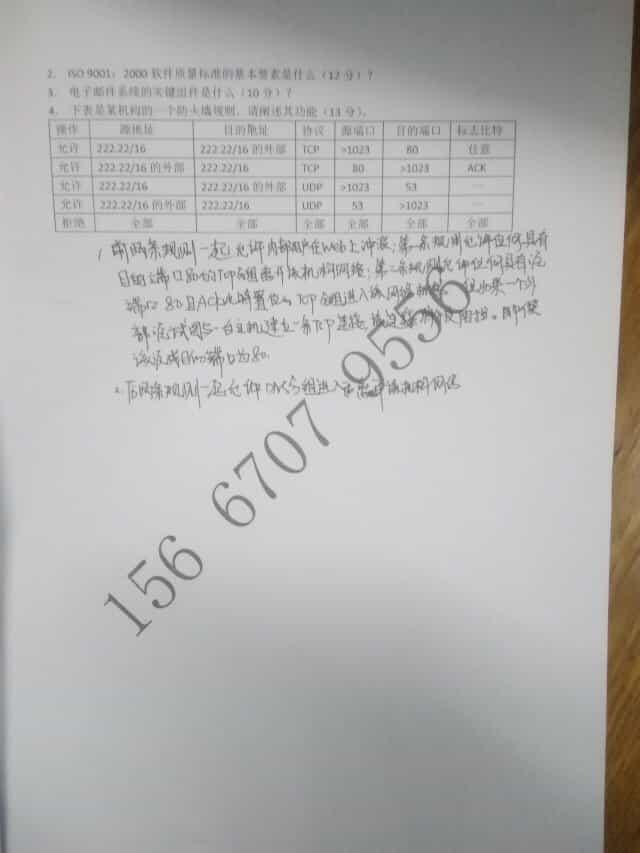 2. ISO 9001：2000 软件质量标准的基本要素是什么（12 分）？
3. 电子邮件系统的关键组件是什么（10 分）？
4. 下表是某机构的一个防火墙规则，请阐述其功能（13 分）。
操作 源地址 目的地址 协议 源端口 目的端口 标志比特
允许 222.22/16 222.22/16 的外部 TCP >1023 80 任意
允许 222.22/16 的外部 222.22/16 TCP 80 >1023 ACK
允许 222.22/16 222.22/16 的外部 UDP >1023 53 —
允许 222.22/16 的外部 222.22/16 UDP 53 >1023 —
拒绝 全部 全部 全部 全部 全部 全部
1. 前两条规则一起允许内部用户在Web上冲浪：第一条规则允许任何具有
目的端口80的TCP分组离开该机构网络；第二条规则允许任何具有源
端口80且ACK比特置位的TCP分组进入该网络。但如果一个外
部源试图与一台主机建立一条TCP连接，
该源或目的端口为80.
2. 后两条规则一起允许DNS分组进入和离开该机构网络
156 6707 9556